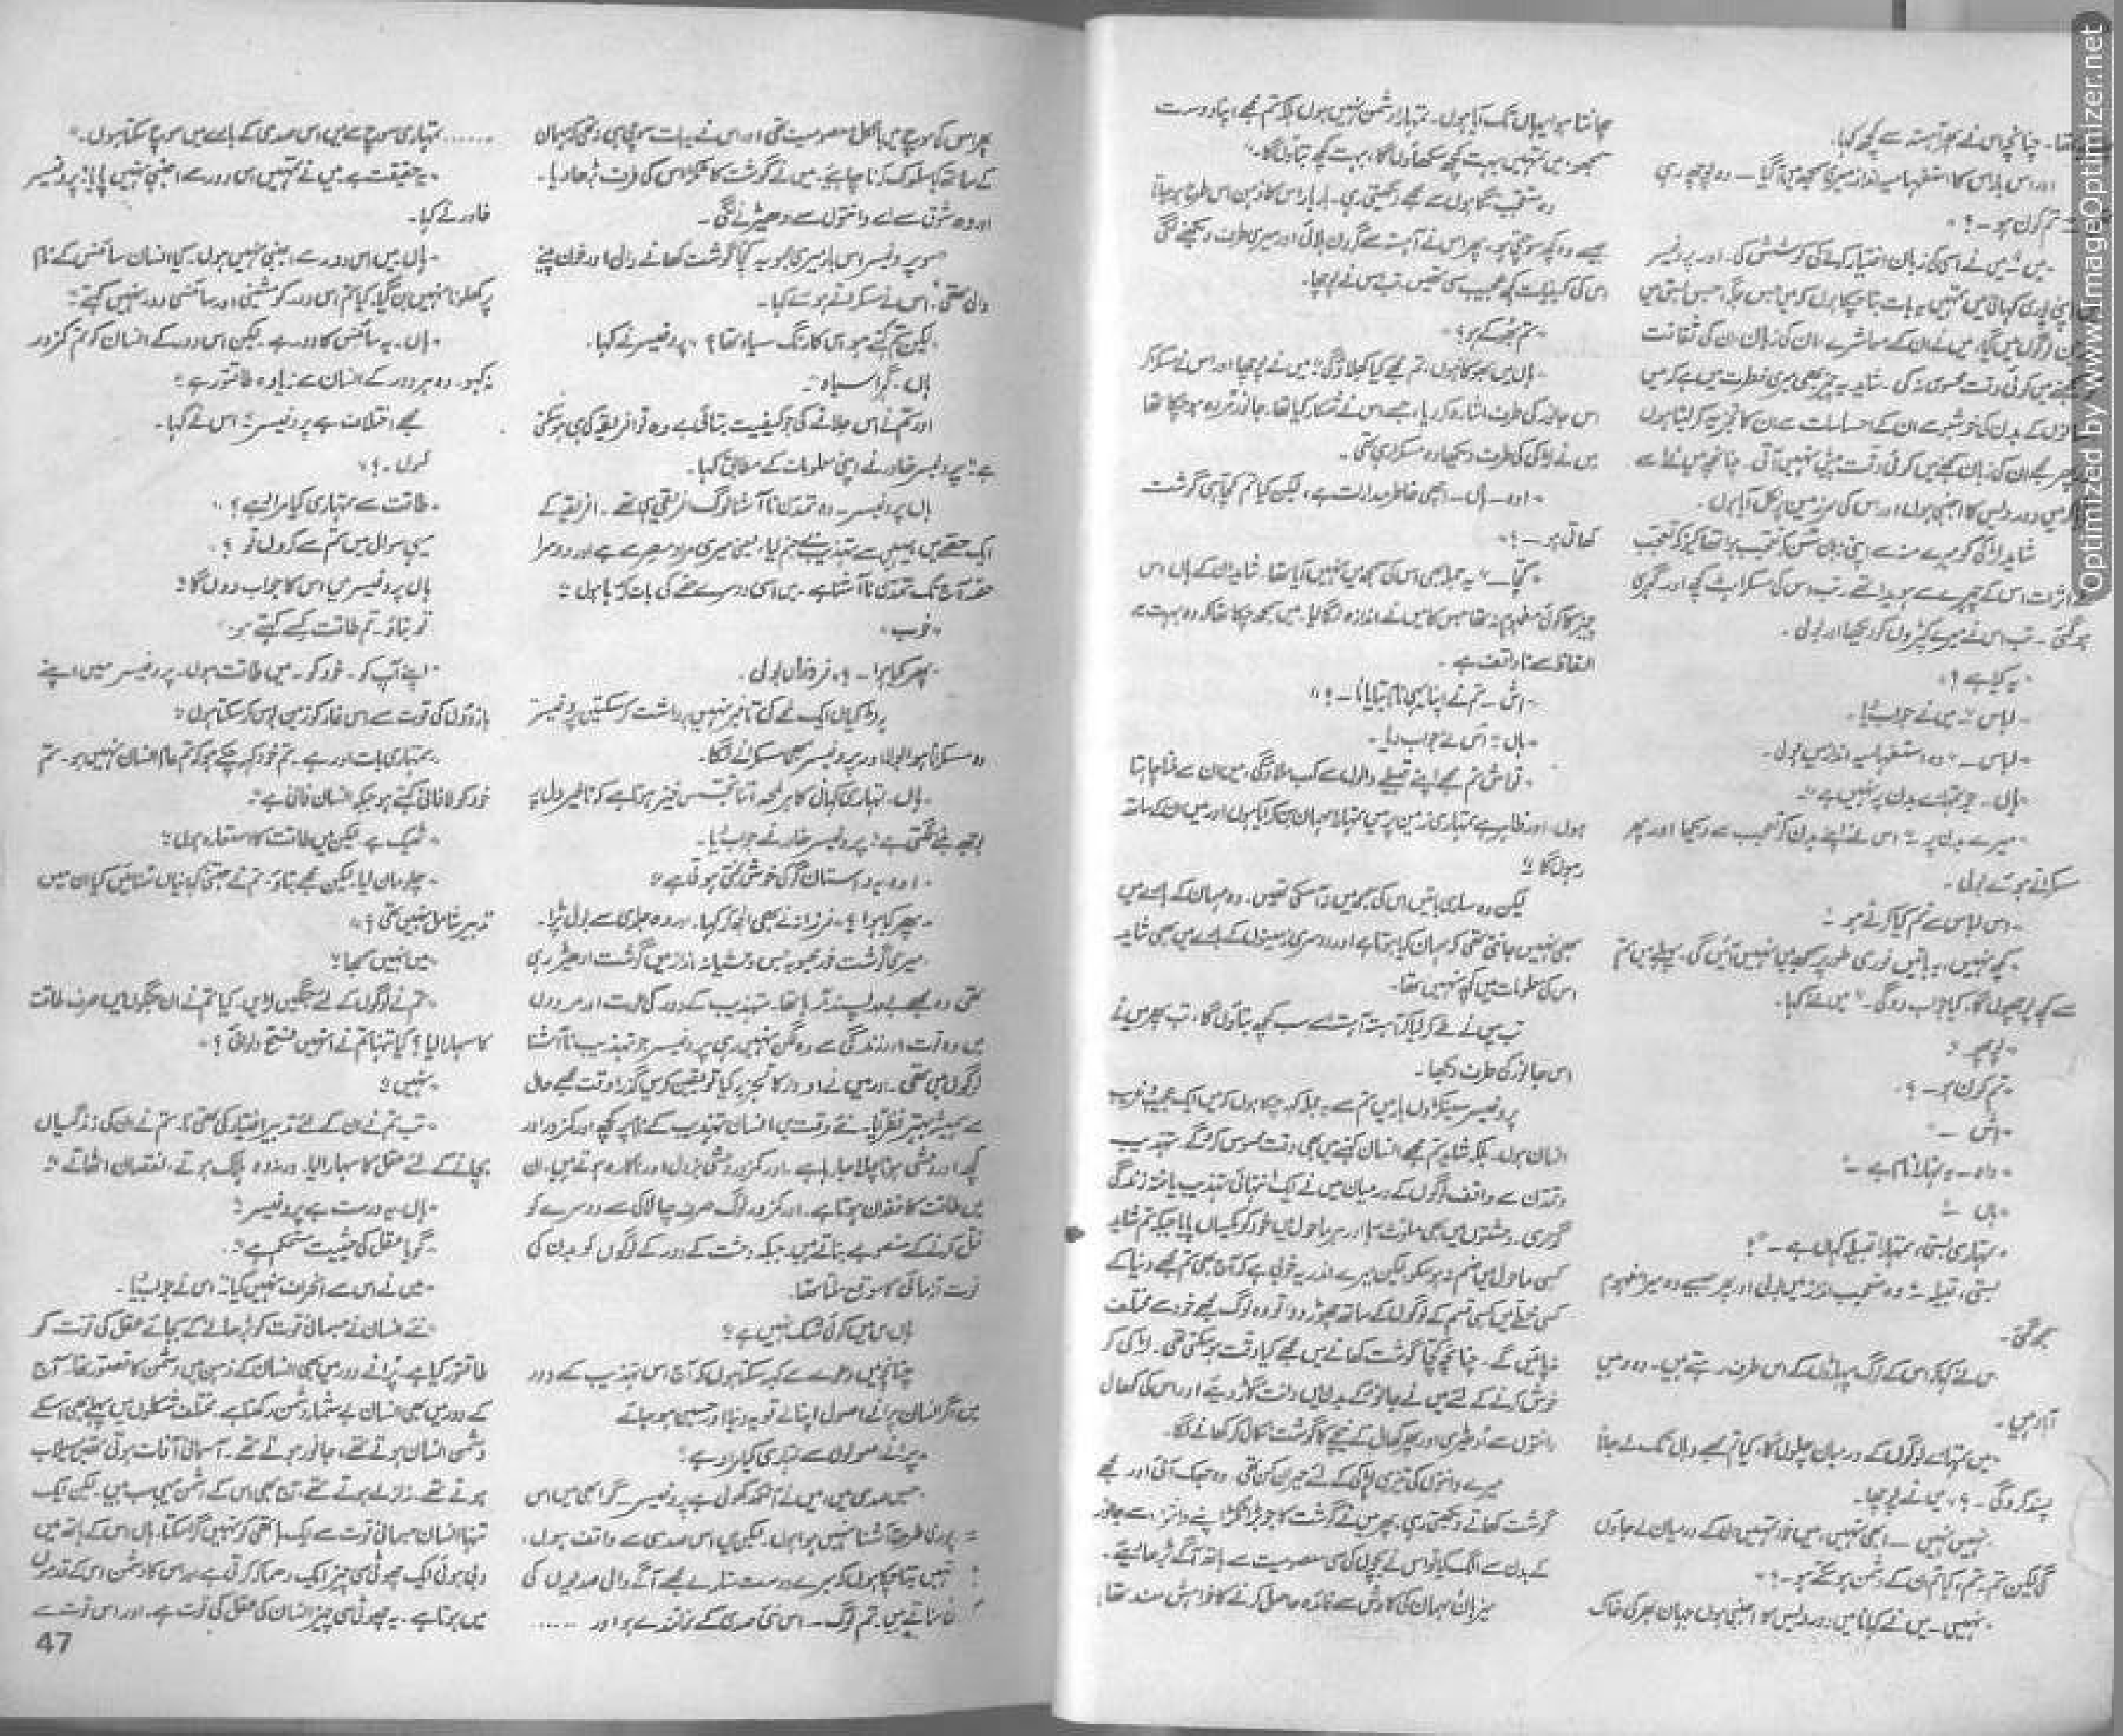 تھا۔ چنانچہ اس نے پھر آہستہ سے کچھ کہا۔
اور اس بار اس کا استفہامیہ انداز میری سمجھ میں آگیا — وہ پوچھ رہی
تم کون ہو — ؟"
"میں" میں نے اسی کی زبان اختیار کرنے کی کوشش کی۔ اور پروفیسر
اپنی پوری کہانی میں تمہیں یہ بات بتا چکا ہوں کہ میں جس جگہ، جس بستی میں
لوگوں میں گیا، میں نے ان کے معاشرے، ان کی زبان ان کی ثقافت
میں کوئی دقت محسوس نہ کی۔ شاید یہ چیز بھی میری فطرت میں ہے کہ میں
کے بدن کی خوشبو سے ان کے احساسات سے ان کا تجزیہ کر لیتا ہوں
پھر مجھے ان کی زبان سمجھنے میں کوئی دقت پیش نہیں آتی۔ چنانچہ میں نے اسے
میں دور دیس کا اجنبی ہوں اور اس کی سرزمین پر نکل آیا ہوں۔
شاید لڑکی کو میرے منہ سے اپنی زبان سن کر تعجب ہوا تھا کیونکہ تعجب
کے اثرات اس کے چہرے سے ہویدا تھے۔ تب اس کی مسکراہٹ کچھ اور گہری
ہو گئی۔ تب اس نے میرے کپڑوں کو دیکھا اور بولی۔
"یہ کیا ہے؟"
"لباس" میں نے جواب دیا۔
"لباس —" وہ استفہامیہ انداز میں بولی۔
"ہاں۔ جو تمہارے بدن پر نہیں ہے"
"میرے بدن پر" اس نے اپنے بدن کو تعجب سے دیکھا اور پھر
مسکراتے ہوئے بولی۔
"اس لباس سے تم کیا کرتے ہو"
"کچھ نہیں، یہ باتیں فوری طور پر سمجھ میں نہیں آئیں گی۔ پہلے میں تم
سے کچھ پوچھوں گا، کیا جواب دو گی۔" میں نے کہا۔
"پوچھو"
"تم کون ہو — ؟"
"اش —"
"واہ — یہ تمہارا نام ہے —"
"ہاں"
"تمہاری بستی، تمہارا قبیلہ کہاں ہے —"؟
بستی، قبیلہ" وہ متعجب انداز میں بولی اور پھر جیسے وہ میرا مفہوم
سمجھ گئی۔
اس نے کہا کہ اس کے لوگ پہاڑوں کے اس طرف رہتے ہیں۔ وہ وہیں
آباد ہیں۔
"میں تمہارے لوگوں کے درمیان چلوں گا، کیا تم مجھے وہاں تک لے جانا
پسند کرو گی — ؟، میں نے پوچھا۔
"نہیں نہیں — ابھی نہیں، میں خود تمہیں ان کے درمیان لے جاؤں
گی لیکن تم۔ تم، کیا تم ان کے دشمن ہو سکتے ہو — ؟"
"نہیں — میں نے کہا نا میں دور دیس کا اجنبی ہوں جہان بھر کی خاک
چھانتا ہوا یہاں تک آیا ہوں۔ تمہارا دشمن نہیں ہوں بلکہ تم مجھے اپنا دوست
سمجھو، میں تمہیں بہت کچھ سکھاؤں گا، بہت کچھ بتاؤں گا۔"
وہ متعجب نگاہوں سے مجھے دیکھتی رہی۔ بار بار اس کا ذہن اس طرح ہو جاتا
جیسے وہ کچھ سوچتی ہو۔ پھر اس نے آہستہ سے گردن ہلائی اور میری طرف دیکھنے لگی
اس کی کیفیات کچھ عجیب سی تھیں۔ تب اس نے پوچھا۔
"تم بھوکے ہو؟"
"ہاں میں بھوکا ہوں، تم مجھے کیا کھلاؤ گی" میں نے پوچھا اور اس نے مسکرا کر
اس جانور کی طرف اشارہ کر دیا، جسے اس نے شکار کیا تھا۔ جانور مردہ ہو چکا تھا
میں نے لڑکی کی طرف دیکھا وہ مسکرا رہی تھی۔
"اوہ — ہاں — اچھی خاطر مدارات ہے، لیکن کیا تم کچا ہی گوشت
کھاتی ہو — ؟"
"کچا —" یہ جملہ بھی اس کی سمجھ میں نہیں آیا تھا۔ شاید ان کے ہاں اس
چیز کا کوئی مفہوم نہ تھا جس کا میں نے اندازہ لگا لیا۔ میں سمجھ چکا تھا کہ وہ بہت سے
الفاظ سے ناواقف ہے۔
"اش — تم نے اپنا یہی نام بتایا نا — ؟"
"ہاں" اس نے جواب دیا۔
"تو اش تم مجھے اپنے قبیلے والوں سے کب ملاؤ گی، میں ان سے ملنا چاہتا
ہوں، اور ظاہر ہے تمہاری زمین پر میں تمہارا مہمان بن کر آیا ہوں اور میں ان کے ساتھ
رہوں گا"
لیکن وہ ساری باتیں اس کی سمجھ میں نہ آ سکی تھیں۔ وہ مہمان کے بارے میں
بھی نہیں جانتی تھی کہ مہمان کیا ہوتا ہے اور دوسری زمینوں کے بارے میں بھی شاید
اس کی معلومات میں کچھ نہیں تھا۔
تب میں نے طے کر لیا کہ آہستہ آہستہ اسے سب کچھ بتاؤں گا، تب پھر میں نے
اس جانور کی طرف دیکھا۔
پروفیسر سینکڑوں بار میں تم سے یہ جملہ کہہ چکا ہوں کہ میں ایک عجیب و غریب
انسان ہوں۔ بلکہ شاید تم مجھے انسان کہنے میں بھی دقت محسوس کرو گے۔ تہذیب
و تمدن سے واقف لوگوں کے درمیان میں نے ایک انتہائی تہذیب یافتہ زندگی
گزاری۔ وحشتوں میں بھی ملوث رہا اور ہر ماحول میں خود کو یکساں پایا جبکہ تم شاید
کسی ماحول میں ضم نہ ہو سکو لیکن میرے اندر یہ خوبی ہے کہ آج بھی تم مجھے دنیا کے
کسی خطے میں کسی قسم کے لوگوں کے ساتھ چھوڑ دو تو وہ لوگ مجھے خود سے مختلف
نہ پائیں گے۔ چنانچہ کچا گوشت کھانے میں مجھے کیا دقت ہو سکتی تھی۔ لڑکی کو
خوش کرنے کے لئے میں نے جانور کے بدن میں دانت گاڑ دیئے اور اس کی کھال
دانتوں سے ادھیڑی اور پھر کھال کے نیچے کا گوشت نکال کر کھانے لگا۔
میرے دانتوں کی تیزی لڑکی کے لئے حیران کن تھی۔ وہ جھک آئی اور مجھے
گوشت کھاتے دیکھتی رہی۔ پھر میں نے گوشت کا جو بڑا ٹکڑا اپنے دانتوں سے جانور
کے بدن سے الگ کیا تو اس نے بچوں کی سی معصومیت سے ہاتھ آگے بڑھا دیئے۔
میزبان مہمان کی کاوش سے فائدہ حاصل کرنے کا خواہش مند تھا،
پھر اس کی سوچ میں بالکل معصومیت تھی اور اس نے یہ بات سوچی ہی نہ تھی کہ مہمان
کے ساتھ کیا سلوک کرنا چاہئے، میں نے گوشت کا ٹکڑا اس کی طرف بڑھا دیا۔
اور وہ شوق سے اسے دانتوں سے ادھیڑنے لگی۔
سو پروفیسر اس بار میری محبوبہ کچا گوشت کھانے والی اور خون پینے
والی تھی" اس نے مسکراتے ہوئے کہا۔
"لیکن تم کہتے ہو اس کا رنگ سیاہ تھا؟" پروفیسر نے کہا۔
ہاں۔ گہرا سیاہ"
اور تم نے اس علاقے کی جو کیفیت بتائی ہے وہ تو افریقہ کی ہی ہو سکتی
ہے" پروفیسر خاور نے اپنی معلومات کے مطابق کہا۔
ہاں پروفیسر — وہ تمدن نا آشنا لوگ افریقی ہی تھے۔ افریقہ کے
ایک حصے میں یہیں سے تہذیب نے جنم لیا، یعنی میری مراد مصر سے ہے اور دوسرا
حصہ آج تک تمدن نا آشنا ہے۔ میں اسی دوسرے حصے کی بات کر رہا ہوں"
"خوب"
"پھر کیا ہوا — ؟، فروزاں بولی۔
یہ لڑکیاں ایک لمحے کی تاخیر نہیں برداشت کر سکتیں پروفیسر
وہ مسکراتا ہوا بولا اور پروفیسر بھی مسکرانے لگا۔
"ہاں۔ تمہاری کہانی کا ہر لمحہ اتنا تجسس خیز ہوتا ہے کہ تاخیر دل پہ
بوجھ بننے لگتی ہے" پروفیسر خاور نے جواب دیا۔
"اوہ یہ داستان گو کی خوش بختی ہوتی ہے"
"پھر کیا ہوا؟" فرزانہ نے بھی الجھ کر کہا۔ اور وہ جلدی سے بول پڑا۔
"میری گوشت خور محبوبہ جس وحشیانہ انداز میں گوشت ادھیڑ رہی
تھی وہ مجھے بے حد پسند آ رہا تھا۔ تہذیب کے دور کی عورت اور مردوں
میں وہ قوت اور زندگی سے وہ لگن نہیں رہی پروفیسر جو تہذیب نا آشنا
لوگوں میں تھی۔ اور میں نے ادوار کا تجزیہ کیا تو یقین کریں گزرا وقت مجھے حال
سے ہمیشہ بہتر نظر آیا۔ نئے وقت میں انسان تہذیب کے نام پر کچھ اور کمزور اور
کچھ اور وحشی ہوتا چلا جا رہا ہے۔ اور کمزور وحشی بزدل اور ناکارہ ہوتے ہیں۔ ان
میں طاقت کا فقدان ہوتا ہے۔ اور کمزور لوگ صرف چالاکی سے دوسرے کو
قتل کرنے کے منصوبے بناتے ہیں۔ جبکہ وحشت کے دور کے لوگوں کو بدن کی
قوت آزمائی کا موقع ملتا تھا۔
ہاں اس میں کوئی شک نہیں ہے؟
چنانچہ میں دعوے سے کہہ سکتا ہوں کہ آج اس تہذیب کے دور
میں اگر انسان پرانے اصول اپنا لے تو یہ دنیا اور حسین ہو جائے
"پرانے اصولوں سے تمہاری کیا مراد ہے"
"جس صدی میں، میں نے آنکھ کھولی ہے پروفیسر۔ گو ابھی میں اس
پوری طرح آشنا نہیں ہوا ہوں۔ لیکن میں اس صدی سے واقف ہوں،
تمہیں بتا چکا ہوں کہ میرے دوست ستارے مجھے آنے والی صدیوں کی
بتاتے ہیں۔ تم لوگ — اس نئی صدی کے نمائندے ہو اور ......
...... تمہاری سوچ سے میں اس صدی کے بارے میں سوچ سکتا ہوں۔"
"یہ حقیقت ہے، میں نے تمہیں اس دور سے اجنبی نہیں پایا" پروفیسر
خاور نے کہا۔
"ہاں میں اس دور سے اجنبی نہیں ہوں۔ کیا انسان سائنس کے نام
پر کھلونا نہیں بن گیا، کیا تم اس دور کو مشینی اور سائنسی دور نہیں کہتے"
"ہاں۔ یہ سائنس کا دور ہے۔ لیکن اس دور کے انسان کو تم کمزور
نہ کہو۔ وہ ہر دور کے انسان سے زیادہ طاقتور ہے"
مجھے اختلاف ہے پروفیسر" اس نے کہا۔
کیوں۔ ؟"
"طاقت سے تمہاری کیا مراد ہے؟"
یہی سوال میں تم سے کروں تو ؟"
ہاں پروفیسر میں اس کا جواب دوں گا"
تو بتاؤ۔ تم طاقت کسے کہتے ہو۔"
"اپنے آپ کو۔ خود کو۔ میں طاقت ہوں۔ پروفیسر میں اپنے
بازوؤں کی قوت سے اس غار کو زمین بوس کر سکتا ہوں"
"تمہاری بات اور ہے۔ تم خود کہہ چکے ہو کہ تم عام انسان نہیں ہو۔ تم
خود کو لافانی کہتے ہو جبکہ انسان فانی ہے"
"ٹھیک ہے لیکن میں طاقت کا استعارہ ہوں"
"چلو مان لیا۔ لیکن مجھے بتاؤ۔ تم نے جتنی کہانیاں سنائیں کیا ان میں
تدبیر شامل نہیں تھی؟"
"میں نہیں سمجھا"
"تم نے لوگوں کے لئے جنگیں لڑیں۔ کیا تم نے ان جنگوں میں صرف طاقت
کا سہارا لیا؟ کیا تنہا تم نے انہیں فتح دلوائی؟"
"نہیں"
"تب تم نے ان کے لئے تدبیر اختیار کی تھی نا۔ تم نے ان کی زندگیاں
بچانے کے لئے عقل کا سہارا لیا۔ ورنہ وہ ہلاک ہوتے، نقصان اٹھاتے"
"ہاں۔ یہ درست ہے پروفیسر"
"گویا عقل کی حیثیت مستحکم ہے"
"میں نے اس سے انحراف نہیں کیا" اس نے جواب دیا۔
"نئے انسان نے جسمانی قوت کو بڑھانے کے بجائے عقل کی قوت کو
طاقتور کیا ہے۔ پرانے دور میں بھی انسان کے ذہن میں دشمن کا تصور تھا۔ آج
کے دور میں بھی انسان بے شمار دشمن رکھتا ہے۔ مختلف شکلوں میں پہلے بھی اسکے
دشمن انسان ہوتے تھے، جانور ہوتے تھے۔ آسمانی آفات ہوتی تھیں سیلاب
ہوتے تھے۔ زلزلے ہوتے تھے، آج بھی اس کے دشمن یہی سب ہیں۔ لیکن ایک
تنہا انسان جسمانی قوت سے ایک ہاتھی کو نہیں گرا سکتا۔ ہاں اس کے ہاتھ میں
دبی ہوئی ایک چھوٹی سی چیز ایک دھماکہ کرتی ہے اور اس کا دشمن اس کے قدموں
میں ہوتا ہے۔ یہ چھوٹی سی چیز انسان کی عقل کی قوت ہے۔ اور اس قوت سے
47
Optimized by www.ImageOptimizer.net